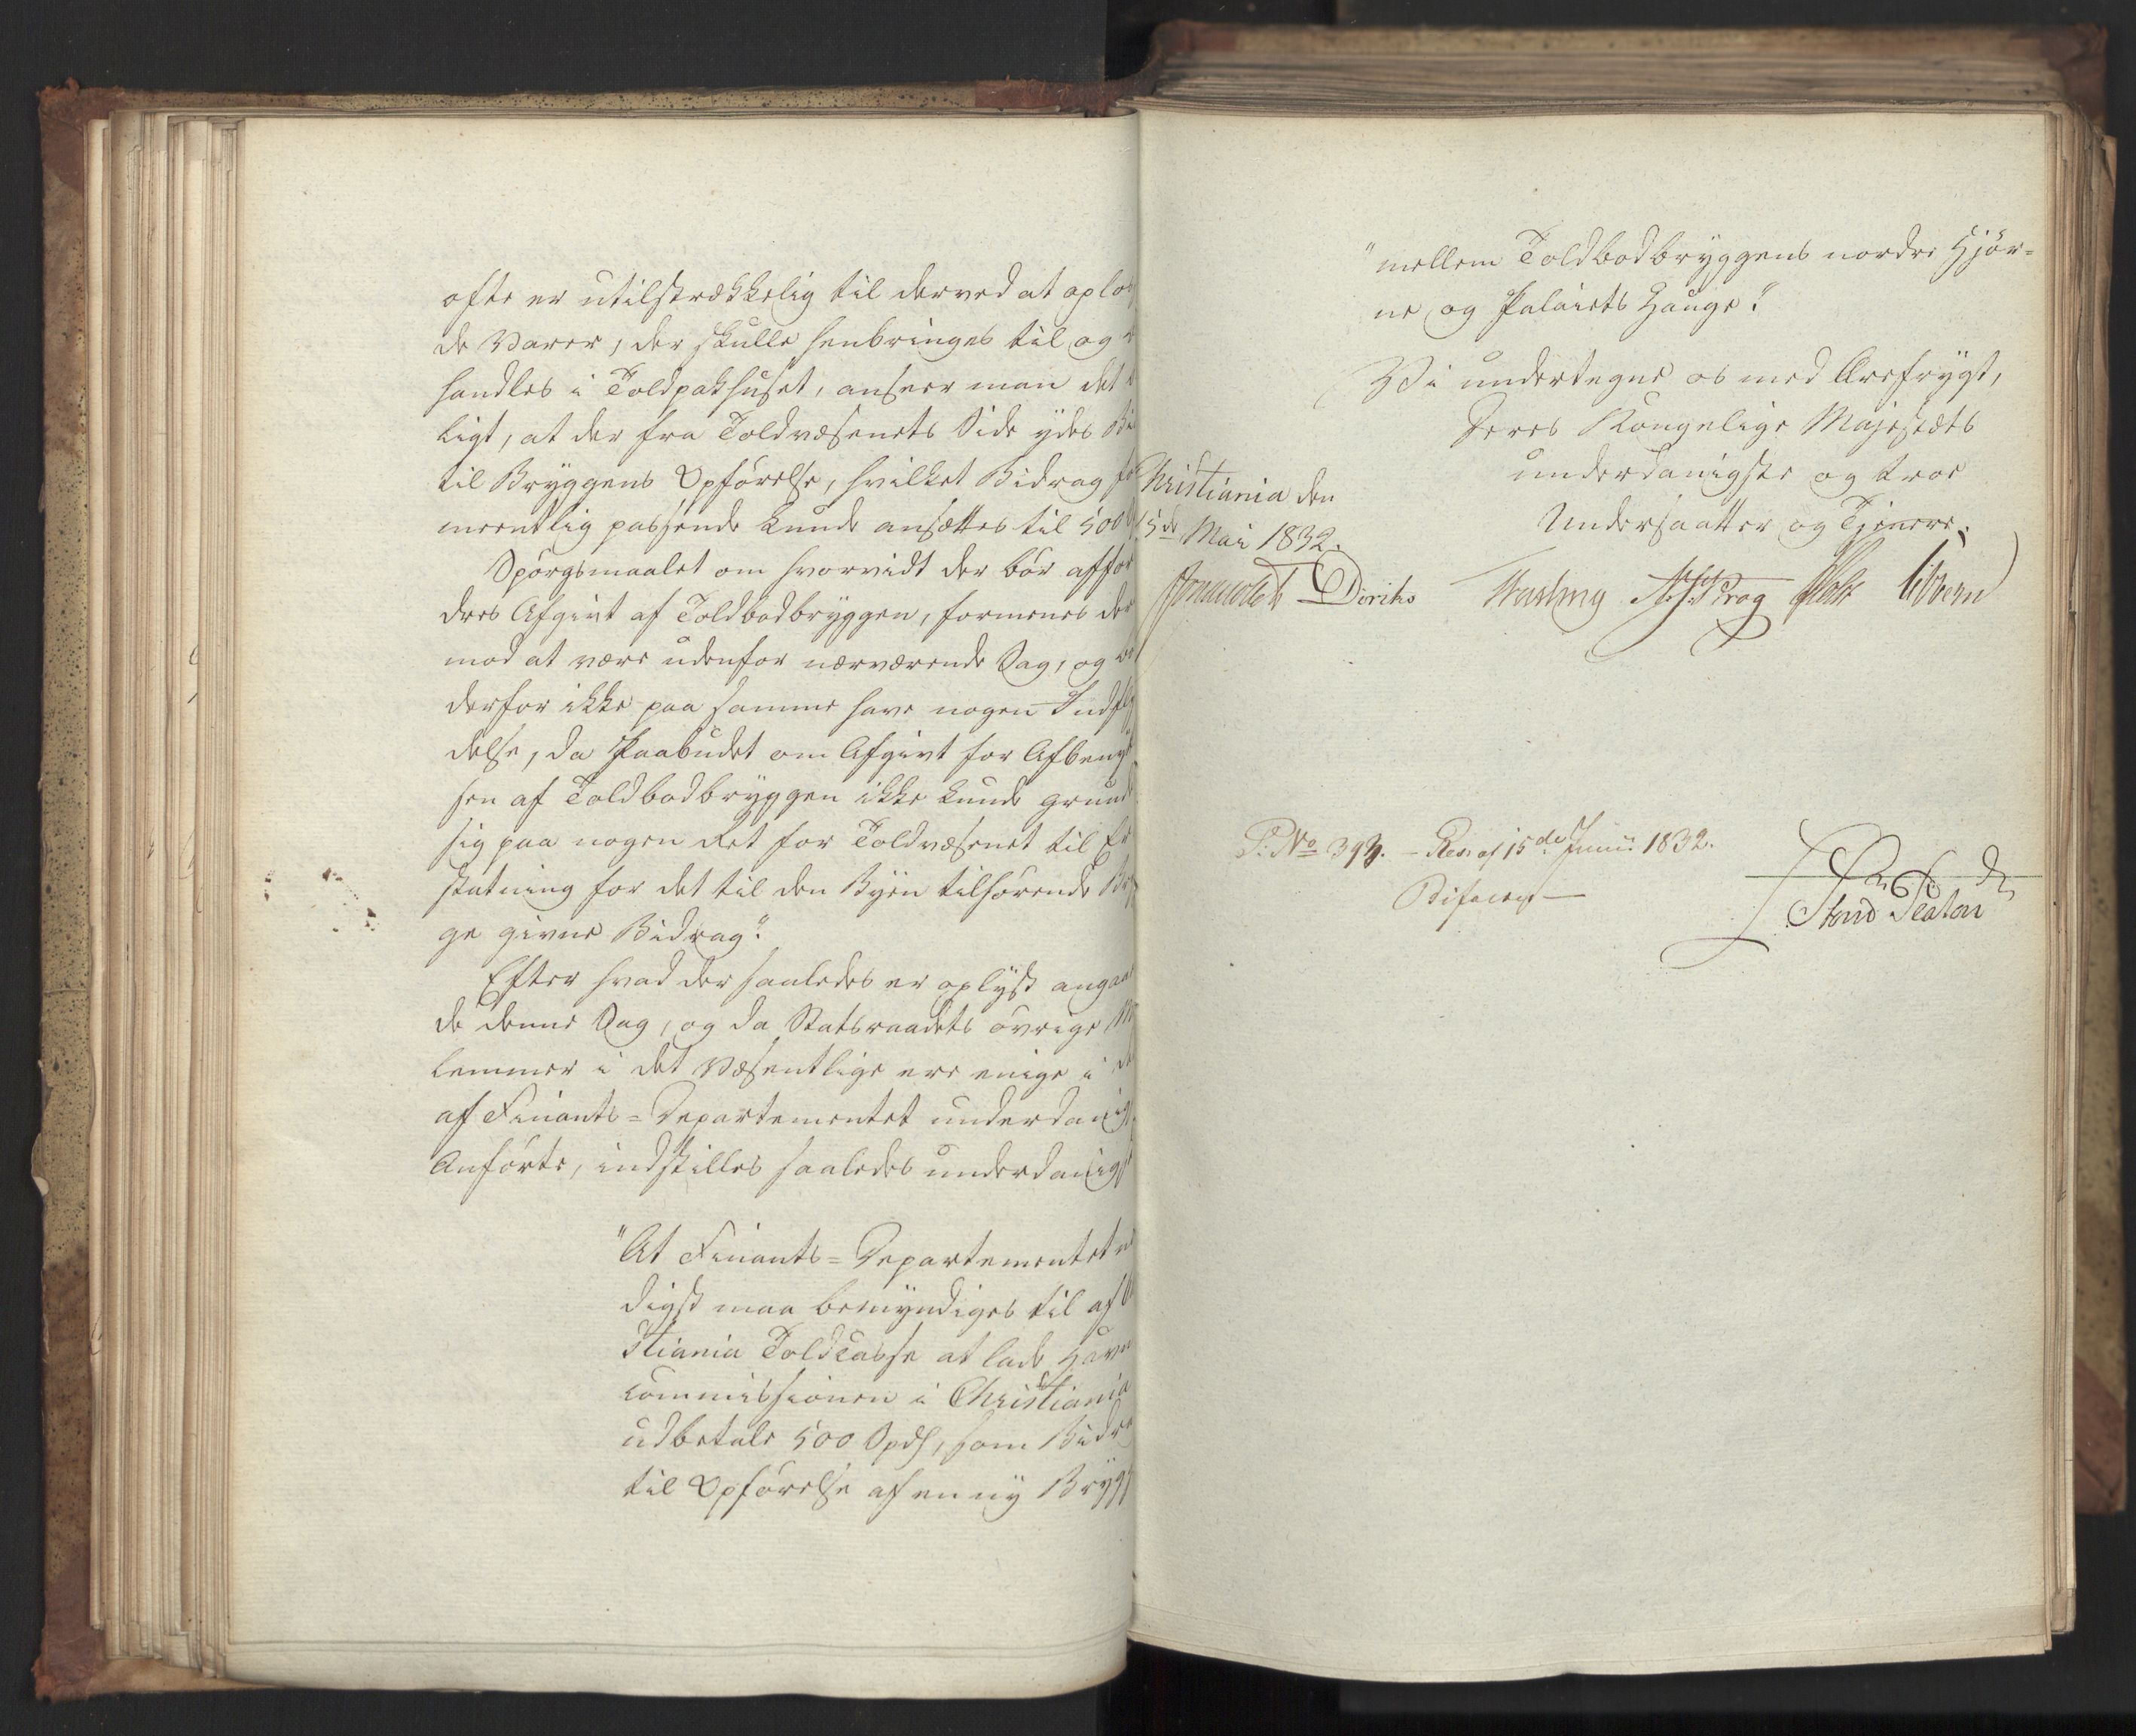 ofte er utilstrækkelig til derved at oplos
de Varer, der skulle henbringes til og
handles i Toldpakhuset, anseer man det
ligt, at der fra Toldvæsenets Side ydes Bi
til Bryggens Opförelse, hvilket Bidrag for
meentlig passende kunde ansættes til 500
Spörgsmaalet om hvorvidt der bör affor
dres Afgivt af Toldbodbryggen, formenes der
mod at være udenfor nærværende Sag, og
derfor ikke paa samme have nogen Indfly
delse, da Paabudet om Afgivt for Afbenyt
sen af Toldbodbryggen ikke kunde grunde
sig paa nogen Ret for Toldvæsenet til Er
statning for det til den Byen tilhörende Bryg
ge givne Bidrag".
Efter hvad der saaledes er oplyst angaaen
de denne Sag, og da Statsraadets övrige Med
lemmer i det Væsentlige ere enige i det
af Finants=Departementet underdanigst
Anförte, indstilles saaledes underdanigst
"At Finants=Departementet
digst maa bemyndiges til af
stiania Toldcasse at lade Havne
commissionen i Christiania
udbetale 500 Spd, som Bidrag
til Opförelse af en ny Brygge
"mellem Toldbodbryggens nordre Hjör=
ne og Palaiets Hauge".
Vi undertegne os med Ærefrygt,
Deres Kongelige Majestæts
underdanigste og troe
Undersaatter og Tjenere.
Christiania den
15de Mai 1832.
Diriks Fasting Krog Holst Vibe
P: No 393. - Res. af 15de Junii 1832.
Bifaldes